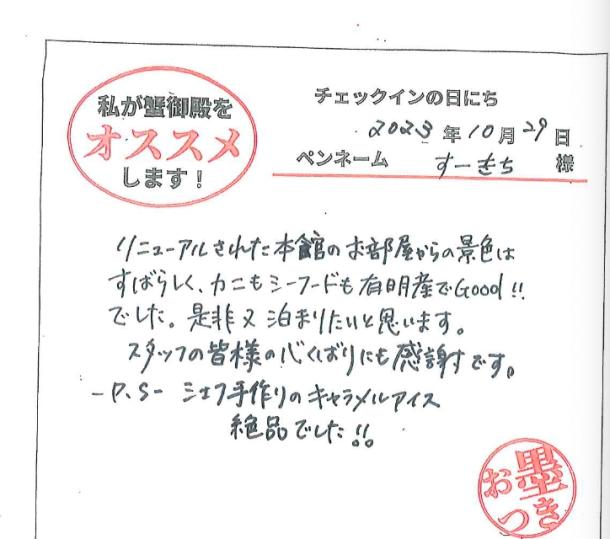 私が蟹御殿を
オススメ
します！
チェックインの日にち
2023年10月29日
ペンネーム すーきち 様
リニューアルされた本館のお部屋からの景色は
すばらしく、カニもシーフードも有明産でGood!!
でした。是非又泊まりたいと思います。
スタッフの皆様の心くばりにも感謝です。
-P.S- シェフ手作りのキャラメルアイス
絶品でした!!
お墨つき